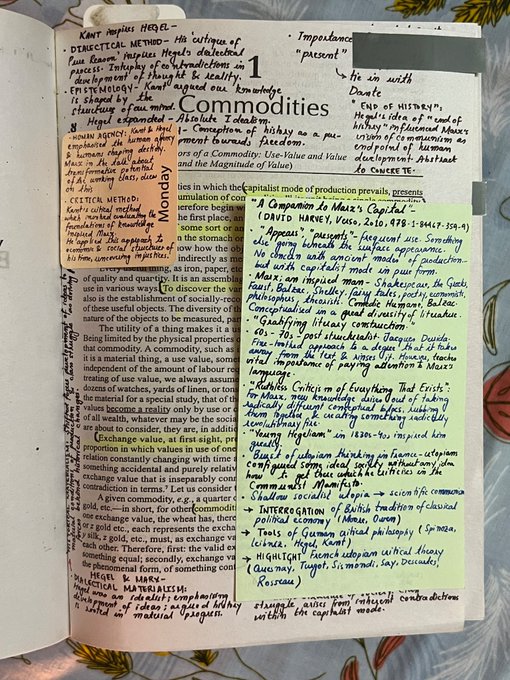 KANT inspires HEGEL -
• DIALECTICAL METHOD - His 'critique of
Pure Reason' inspires Hegel's dialectical
process. Interplay of contradictions in
development of thought & reality.
• EPISTEMOLOGY - Kant argued our knowledge
is shaped by the
structures of our mind.
Hegel expanded - Absolute Idealism.
- Conception of history as a
towards freedom.
• Importance
"present"
→ tie in with
Dante
"END OF HISTORY";
Hegel's idea of "end of
history" influenced Marx's
vision of communism as
endpoint of human
development. Abstract
to CONCRETE.
1
Commodities
ors of a Commodity: Use-Value and Value
and the Magnitude of Value)
• HUMAN AGENCY: Kant & Hegel
emphasised the human agency
& humans shaping destiny.
Marx in the talk about
transformative potential
of the working class, drew
on this.
• CRITICAL METHOD:
Kant's critical method
which involved evaluating the
foundations of knowledge
inspired Marx.
He applied this approach to
economic & social structures of
his time, uncovering injustices.
Monday
ties in which the capitalist mode of production prevails, presents
umulation of
erefore begin w
the first place, an
some sort or an
n the stomach or
ow how the obj
indirectly as me
Every useful thing, as iron, paper, etc
of quality and quantity. It is an assemblag
use in various ways. To discover the var
also is the establishment of socially-recog
of these useful objects. The diversity of th
nature of the objects to be measured, par
The utility of a thing makes it a us
Being limited by the physical properties o
that commodity. A commodity, such as i
it is a material thing, a use value, some
independent of the amount of labour rec
treating of use value, we always assume
dozens of watches, yards of linen, or ton
the material for a special study, that of th
values become a reality only by use or c
of all wealth, whatever may be the socia
are about to consider, they are, in additi
Exchange value, at first sight, pre
proportion in which values in use of one
relation constantly changing with time
something accidental and purely relati
exchange value that is inseparably conn
contradiction in terms. Let us consider t
A given commodity, e.g., a quarter o
gold, etc.—in short, for other commoditi
one exchange value, the wheat has, there
or z gold etc., each represents the exchan
y silk, z gold, etc., must, as exchange va
each other. Therefore, first: the valid ex
something equal; secondly, exchange val
the phenomenal form, of something cont
"A Companion to Marx's Capital" -
(DAVID HARVEY, Verso, 2010, 978-1-84467-359-9)
• "Appears", "presents" - frequent use. Something
else going beneath the surface appearance.
• No concern with ancient modes of production -
but with capitalist mode in pure form.
• Marx: an inspired man - Shakespeare, the Greeks,
Faust, Balzac, Shelley, fairy tales, poetry, economists,
philosophers, theorists. Comedie Humaine, Balzac.
Conceptualised in a great diversity of literature.
- "Gratifying literary construction."
• 60s - 70s - post structuralist Jacques Derrida.
Fine-toothed approach to a degree that it takes
away from the text & rinses it. However, teaches
vital importance of paying attention to Marx's
language.
• "Ruthless Criticism of Everything That Exists":
For Marx, new knowledge arises out of taking
radically different conceptual blocs, rubbing
them together & creating something radically,
revolutionary fire.
• "Young Hegelians" in 1830s-40s inspired him
greatly.
• Burst of utopian thinking in france - utopians
configured some ideal society without any idea
how to get there which he criticises in the
Communist Manifesto.
Shallow socialist utopia → scientific communism
→ INTERROGATION of British tradition of classical
political economy (More, Owen)
→ Tools of German critical philosophy (Spinoza,
Leibniz, Hegel, Kant)
→ HIGHLIGHT French utopian critical theory
(Quesnay, Turgot, Sismondi, Say, Descartes,
Rosseau)
• HEGEL & MARX -
DIALECTICAL MATERIALISM:
Hegel was an idealist; emphasising
development of ideas; argued history
is rooted in material progress.
struggle arises from inherent contradictions
within the capitalist mode.